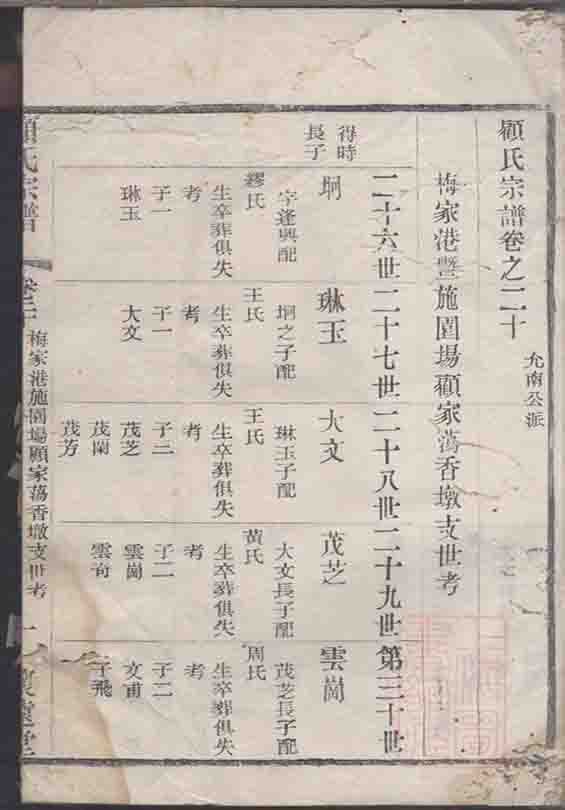 顧氏宗譜卷之二十
允南公派
梅家港暨施圍場顧家蕩香墩支世考
二十六世
二十七世
二十八世
二十九世
第三十世
得時
長子
坰
字逢興配
繆氏
生卒葬俱失
考
子一
琳玉
琳玉
坰之子配
王氏
生卒葬俱失
考
子一
大文
大文
琳玉子配
王氏
生卒葬俱失
考
子三
茂芝
茂蘭
茂芳
茂芝
大文長子配
黃氏
生卒葬俱失
考
子二
雲崗
雲奇
雲崗
茂芝長子配
周氏
生卒葬俱失
考
子二
文甫
子飛
顧氏宗譜
卷二十
梅家港施圍場顧家蕩香墩支世考
一